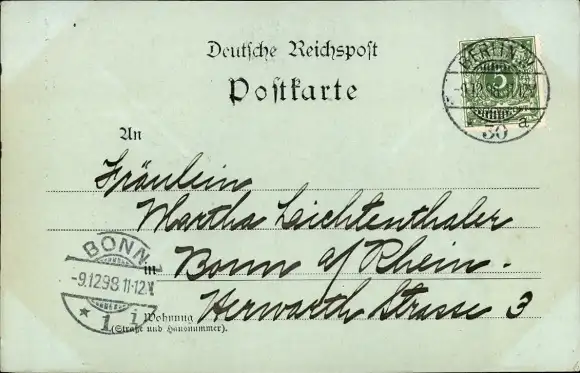 Deutsche Reichspost
Postkarte
BERLIN W
5
30 a
An
Fräulein
Martha Leichtenthaler
in Bonn a/ Rhein.
Herwarth Strasse 3
BONN
-9.12.98.11-12.V
* 1 i
Wohnung
(Straße und Hausnummer).